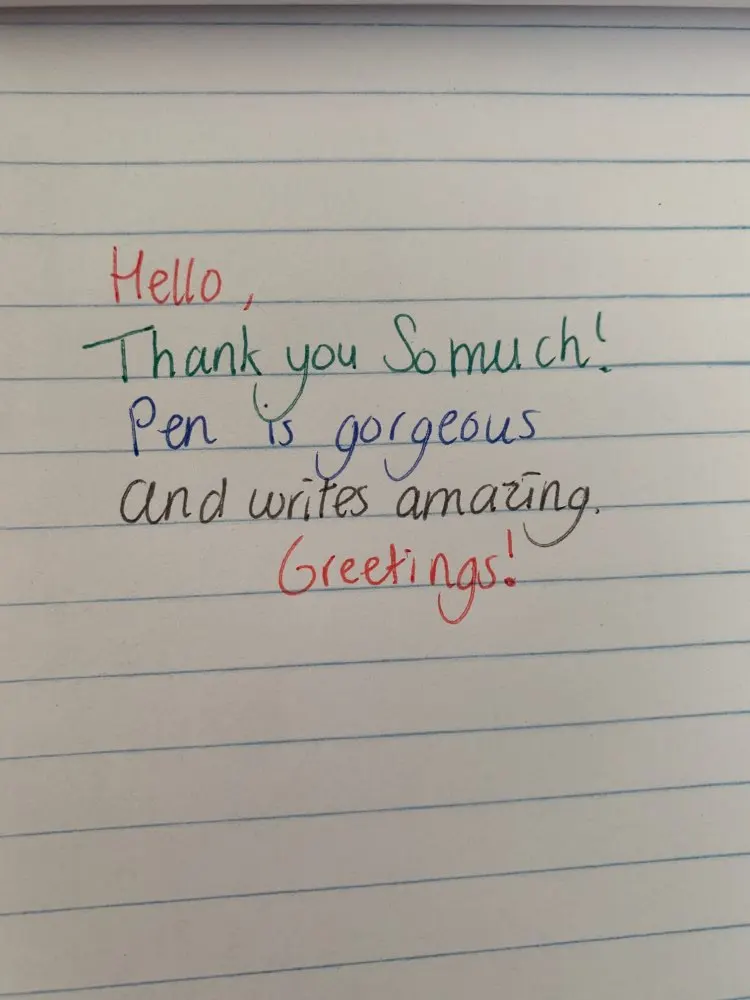 Hello,
Thank you So much!
Pen is gorgeous
and writes amazing.
Greetings!